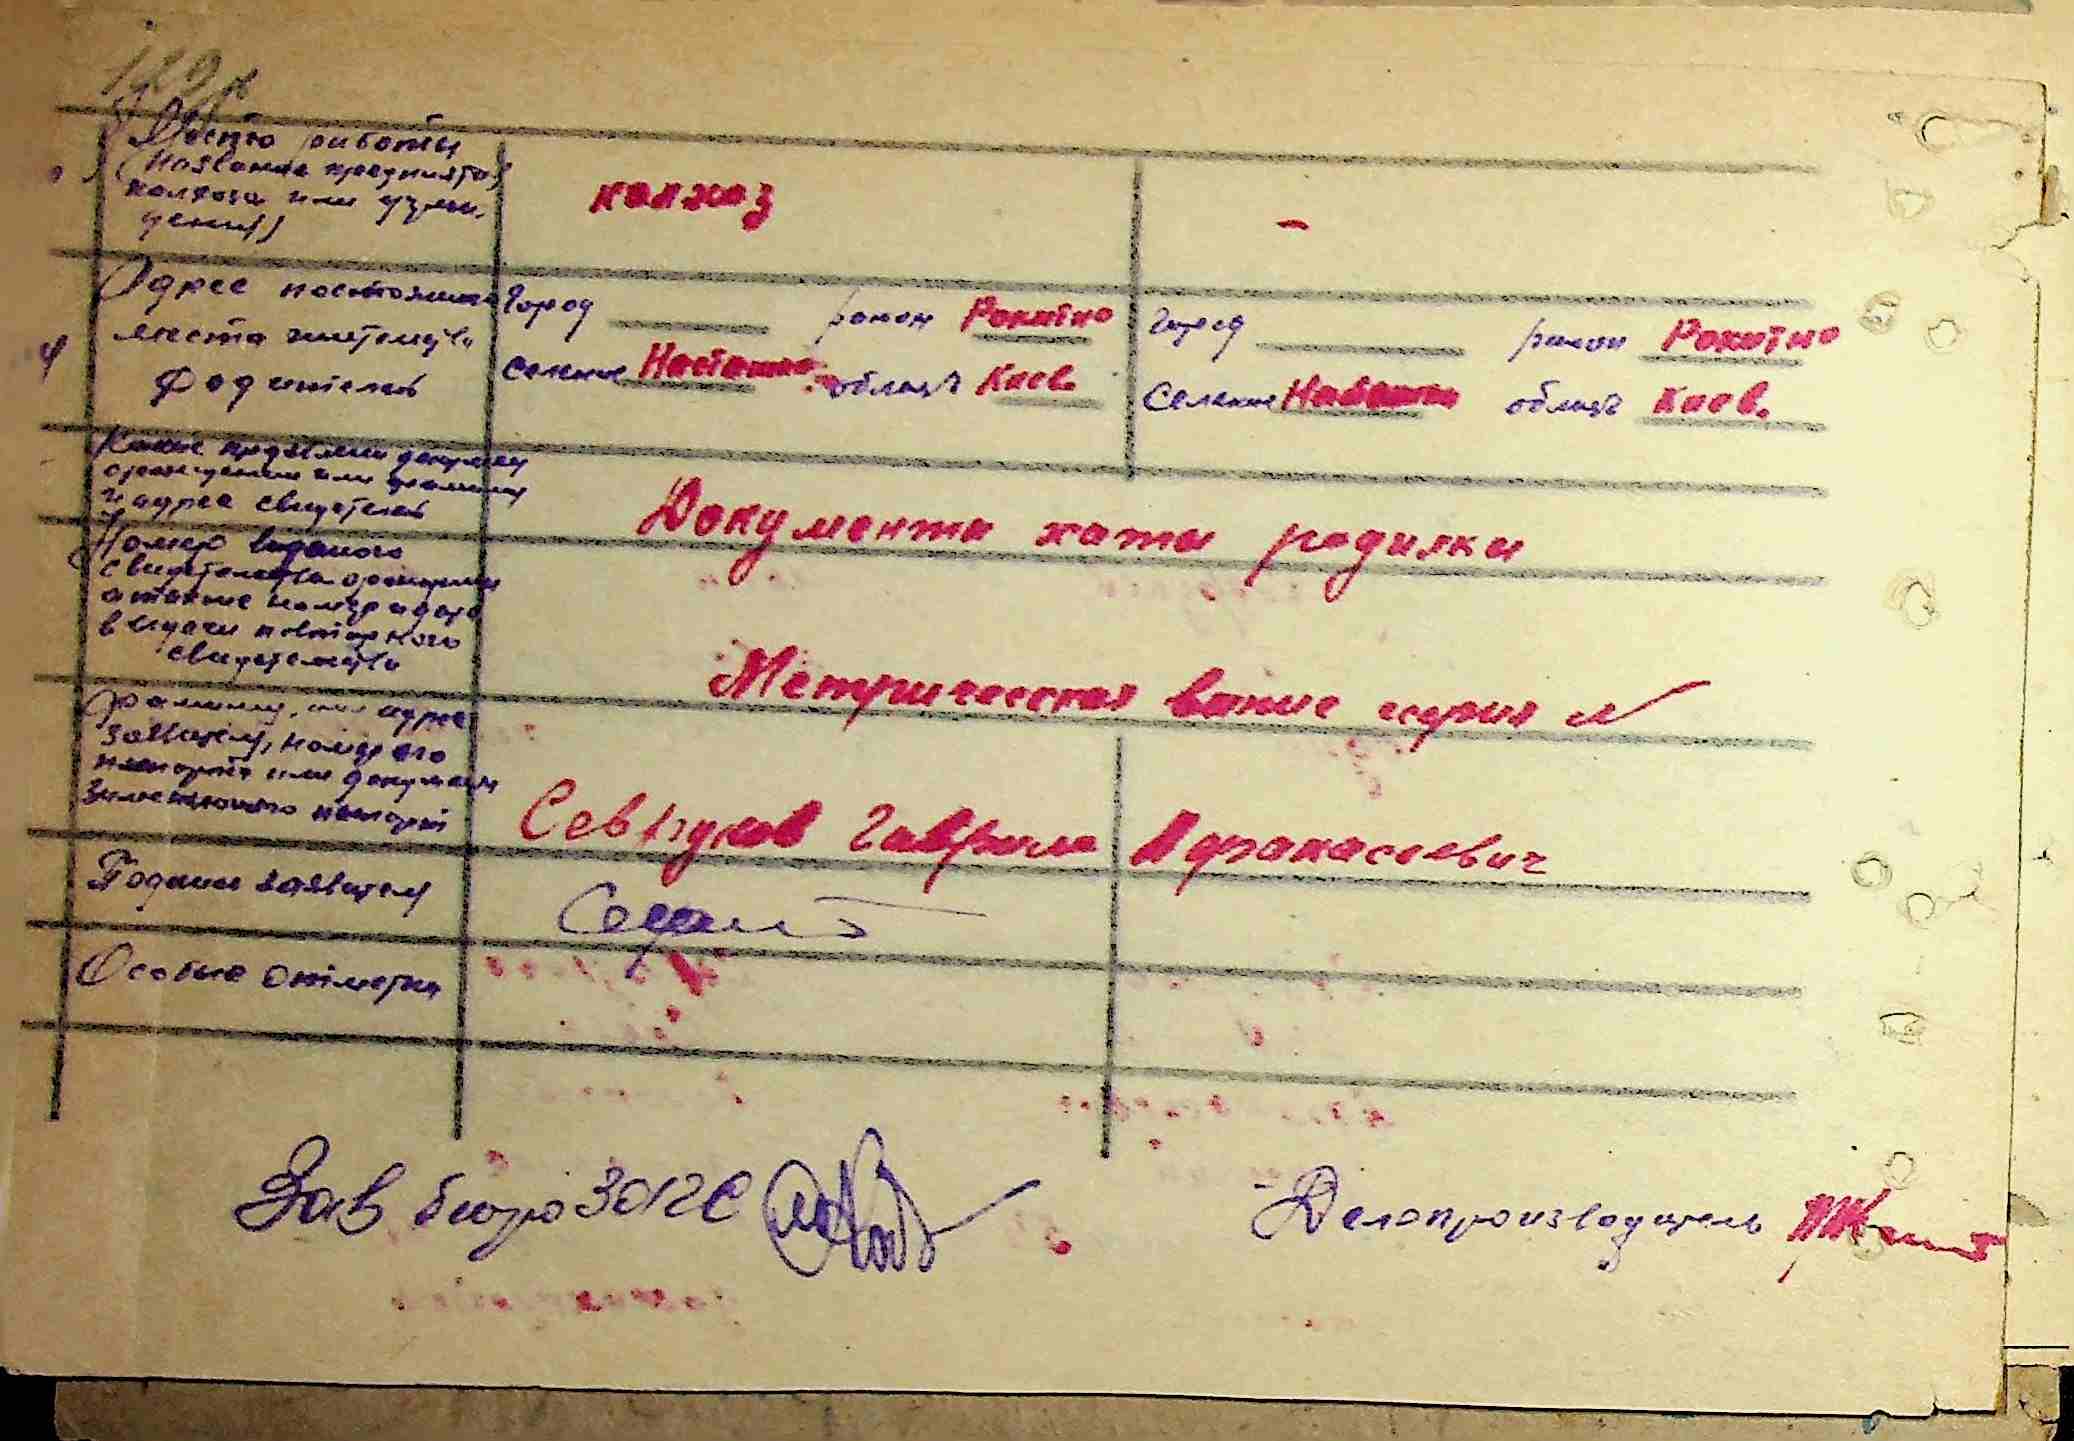 Место работы
(Название предприятия
колхоза или учреж-
дения)
колхоз
-
Адрес постоянного
места жительства
Родителей
Город район Рокитно
Селение Насташка область Киев.
Город район Рокитно
Селение область Киев.
Какие предъявлены
и адрес свидетелей
Документи хаты родилки
Номер выданого
свидетельства о рождении
а также номер и дата
выдачи повторного
свидетельства
Метрическая серия №
Фамилия, имя адрес
заявителя, номер его
паспорта или документа
заменяющего паспорт
Гаврила Афанасиевич
Подпись заявителя
Особые отметки
Зав бюро ЗАГС
Делопроизводитель